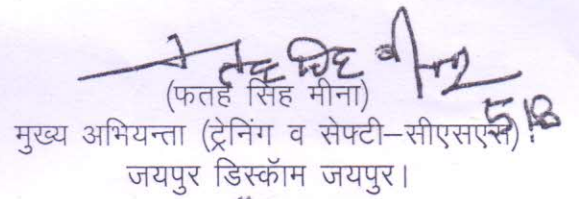 (फतह सिंह मीना)
मुख्य अभियन्ता (ट्रेनिंग व सेफ्टी–सीएसएस)
5/8
जयपुर डिस्कॉम जयपुर।